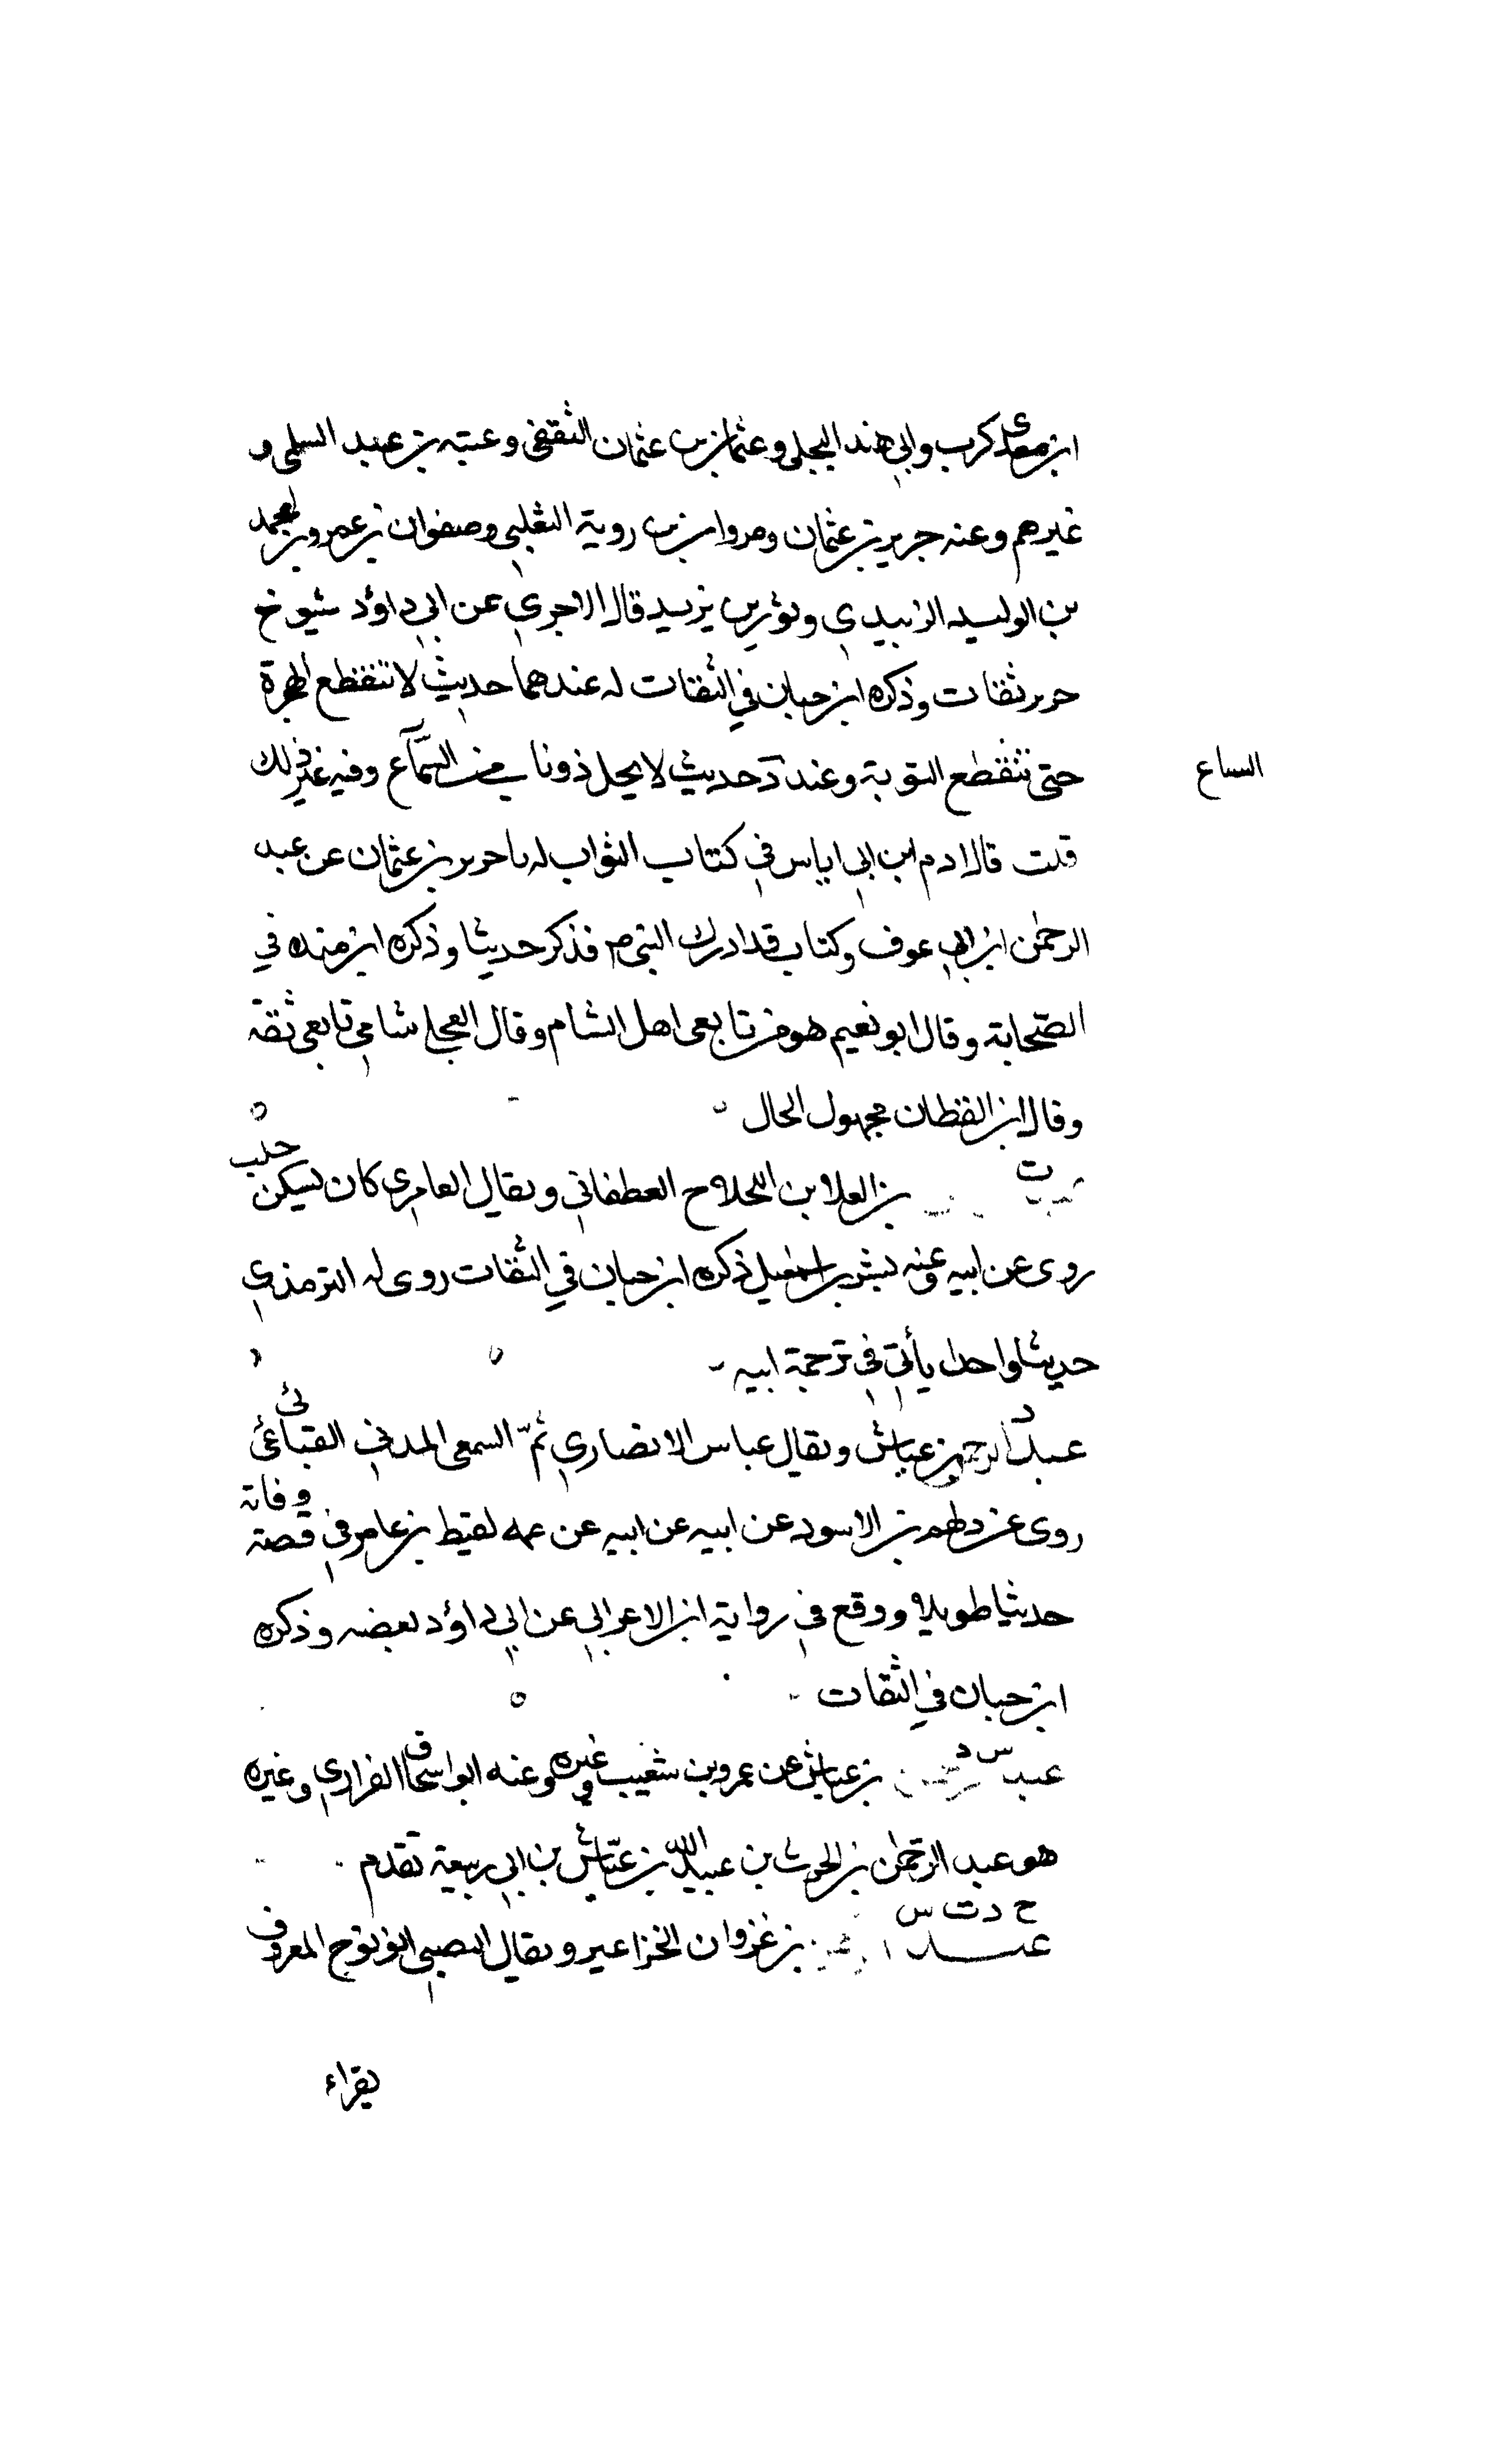 ابن معدى كرب وابي هند البجلي وعثمان بن عثمان الثقفي وعتبة بن عبد السلمي و
غيرهم وعنه جرير بن عثمان ومروان بن روبة التغلبي وصفوان بن عمرو ومحمد
بن الوليد الزبيدي وثور بن يزيد قال الاجري عن ابي داؤد شيوخ
حرير ثقات وذكره ابن حبان في الثقات له عندهما حديث لا تنقطع الهجرة
حتى تنقطع التوبة وعند د حديث لا يحل ذو ناب من السباع وفيه غير ذلك
السباع
قلت قال ادم ابن ابي اياس في كتاب الثواب له نا حرير بن عثمان عن عبد
الرحمن ابن ابي عوف وكتاب قد ادرك النبي ص فذكر حديثا وذكره ابن منده في
الصحابة وقال ابو نعيم هو من تابعي اهل الشام وقال العجلي شامي تابعي ثقة
وقال ابن القطان مجهول الحال
ت بن العلا بن اللجلاج العطفاني ويقال العامري كان يسكن حلب
روى عن ابيه وعنه مبشر بن اسمعيل ذكره ابن حبان في الثقات روى له الترمذي
حديثا واحدا يأتي في ترجمة ابيه
د عبد الرحمن بن عياش ويقال عباس الانصاري ثم السمعي المدني القبائي
روى عن دلهم بن الاسود عن ابيه عن ابيه عن عمه لقيط بن عامر في قصة وفاته
حديثا طويلا ووقع في رواية ابن الاعرابي عن ابي داؤد بعضه وذكره
ابن حبان في الثقات
س د عبد الرحمن بن عياش عن عمرو بن شعيب وغيره وعنه ابو اسحاق الفزاري وغيره
هو عبد الرحمن بن الحرث بن عبد الله بن عياش بن ابي ربيعة تقدم
خ د ت س عبد الرحمن بن غزوان الخزاعي ويقال الضبي ابو نوح المعروف
بقراء